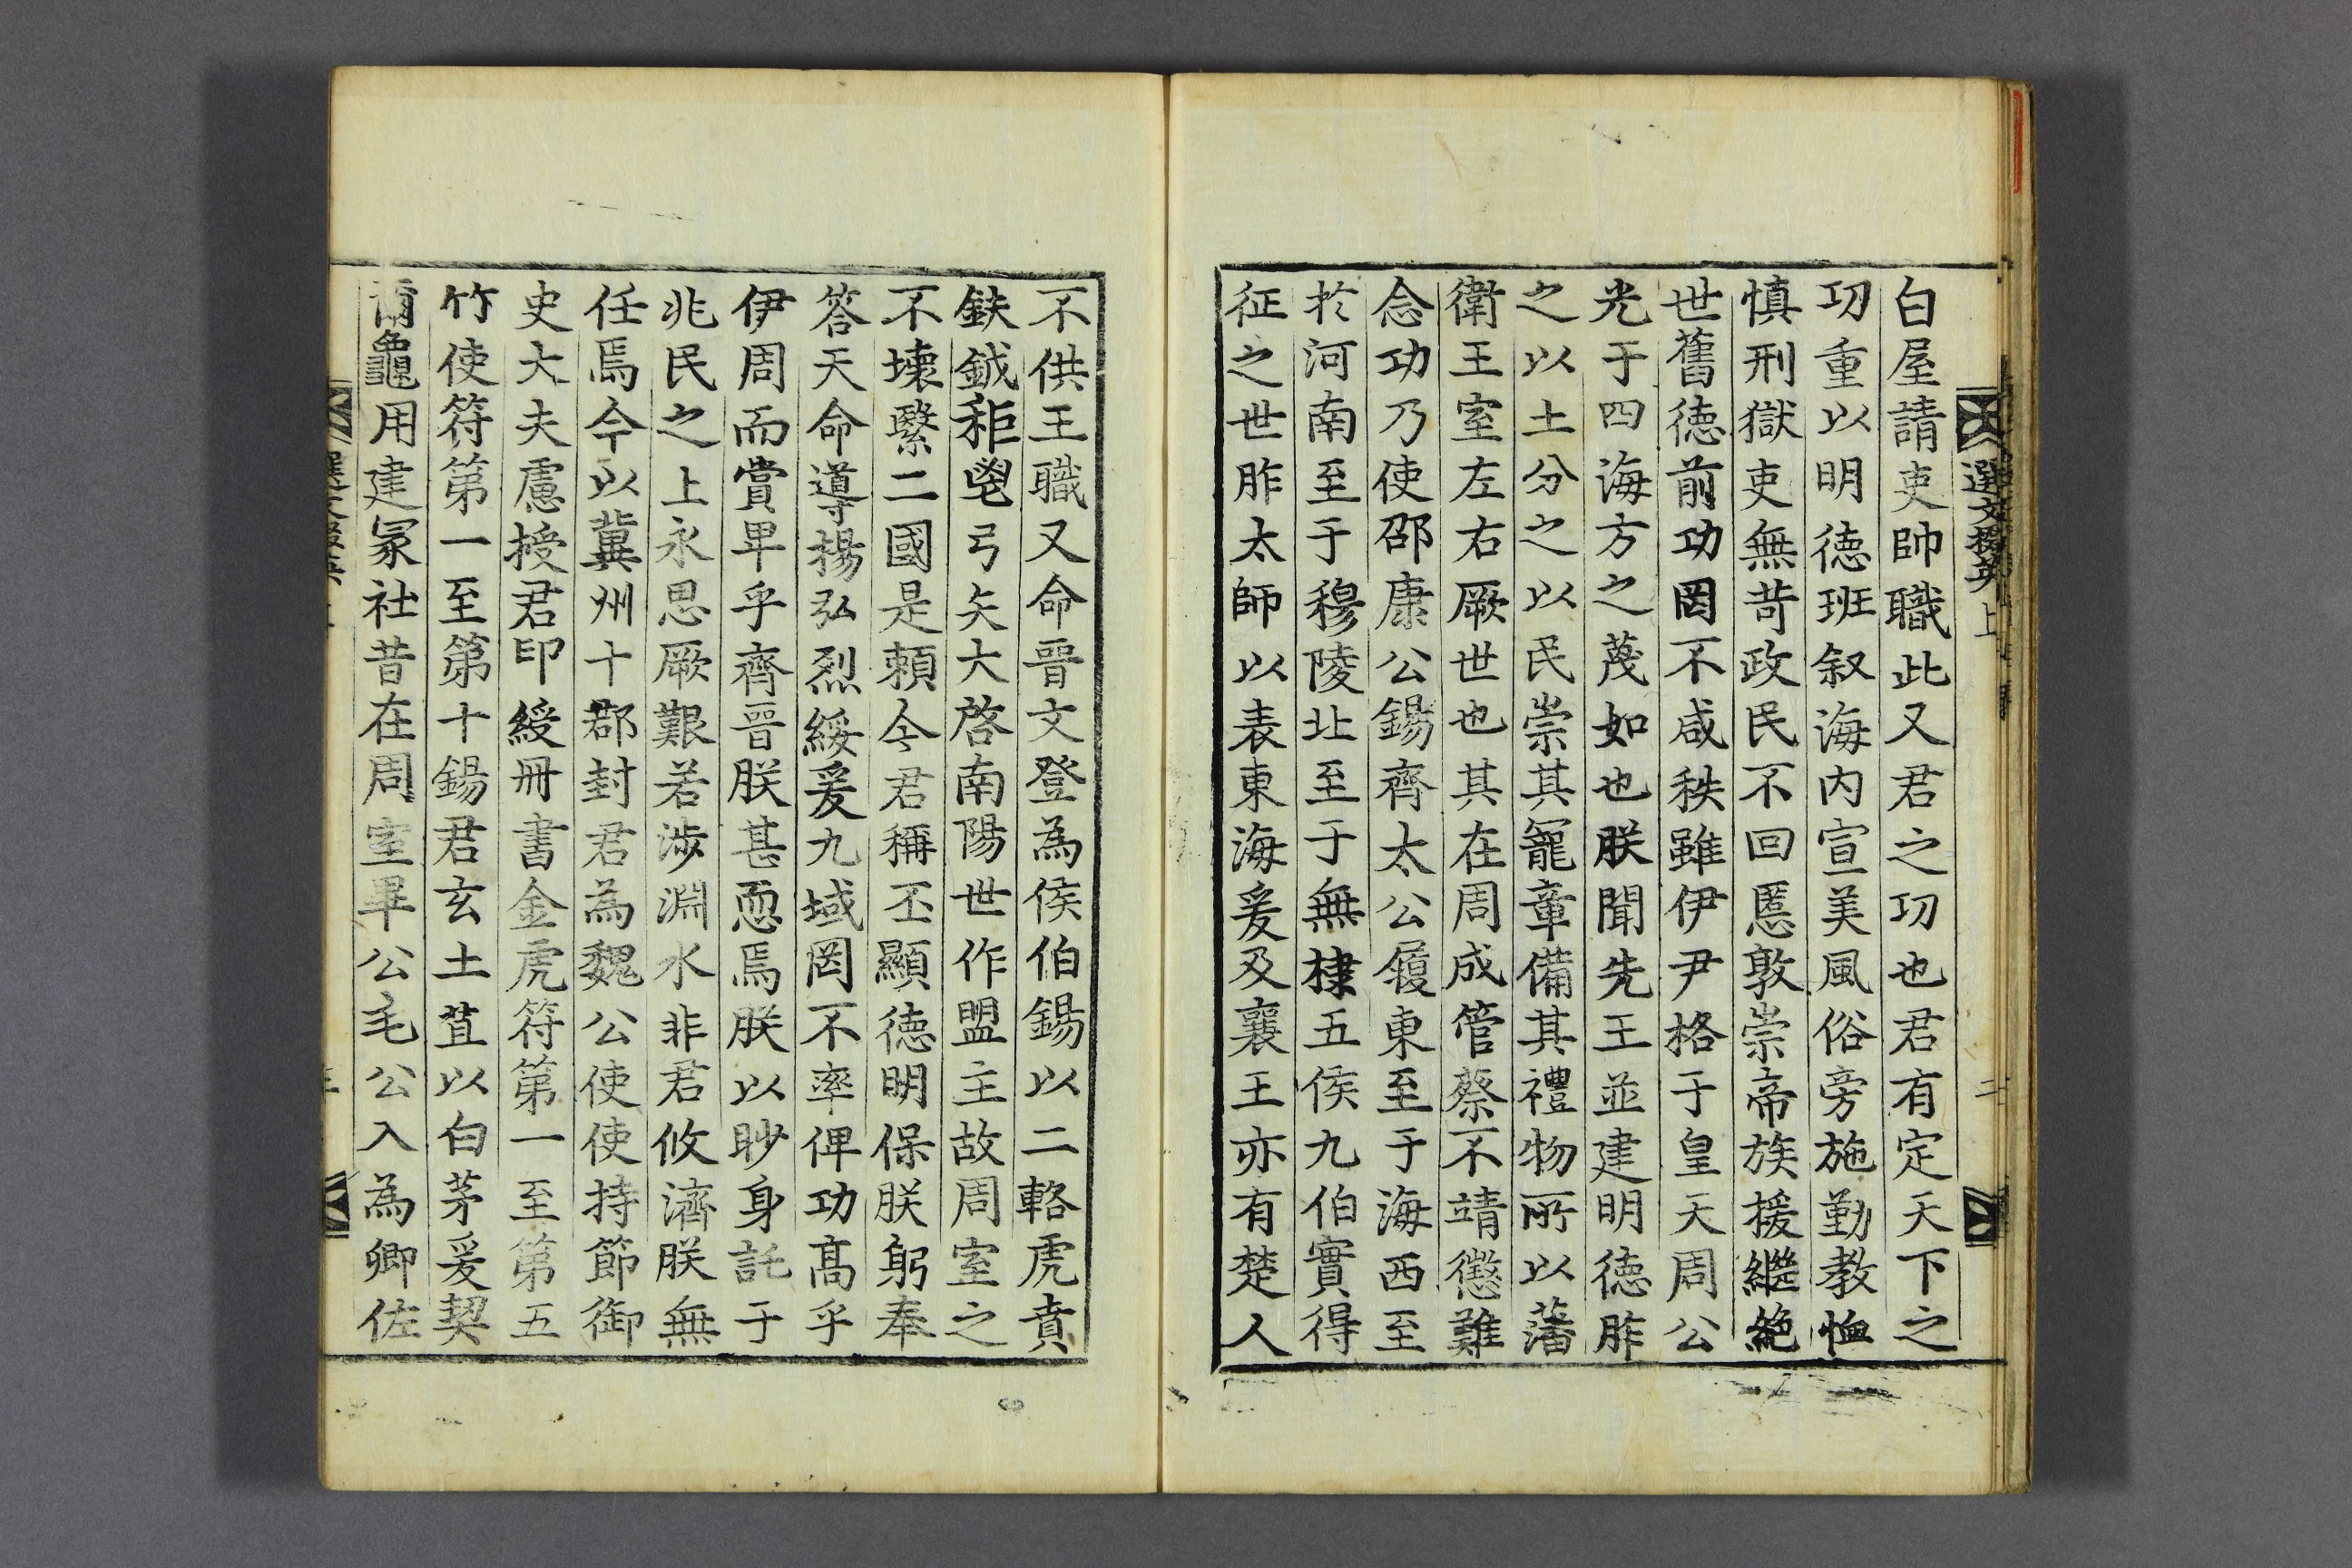 白屋請吏帥職此又君之功也君有定天下之
功重以明德班叙海内宣美風俗旁施勤教恤
慎刑獄吏無苛政民不回慝敦崇帝族援繼絶
世舊德前功罔不咸秩雖伊尹格于皇天周公
光于四海方之蔑如也朕聞先王並建明德胙
之以土分之以民崇其寵章備其禮物所以藩
衛王室左右厥世也其在周成管蔡不靖懲難
念功乃使邵康公錫齊太公履東至于海西至
於河南至于穆陵北至于無棣五侯九伯實得
征之世胙太師以表東海爰及襄王亦有楚人
選文掇英上
二
不供王職又命晉文登為侯伯錫以二輅虎賁
鈇鉞秬鬯弓矢大啓南陽世作盟主故周室之
不壞繄二國是頼今君稱丕顯德明保朕躬奉
答天命導揚弘烈綏爰九域罔不率俾功髙乎
伊周而賞卑乎齊晉朕甚恧焉朕以眇身託于
兆民之上永思厥艱若涉淵水非君攸濟朕無
任焉今以冀州十郡封君為魏公使使持節御
史大夫慮授君印綬冊書金虎符第一至第五
竹使符第一至第十錫君玄土苴以白茅爰契
爾龜用建冢社昔在周室畢公毛公入為卿佐